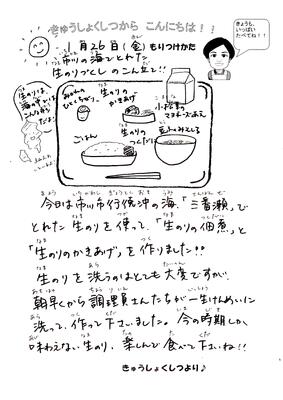 きゅうしょくしつから こんにちは！！
きょうも、
いっぱい
たべてね！！
1月26日(金)もりつけかた
市川の海でとれた
生のりづくしのこんだて!!
生のりの
かきあげ
ごはん
生のりの
つくだに
今日は市川市行徳沖の海「三番瀬」で
とれた生のりを使って、「生のりの佃煮」と
「生のりのかきあげ」を作りました!!
生のりを洗うのはとても大変ですが、
朝早くから調理員さんたちが一生けんめいに
洗って、作って下さいました。今の時期しか、
味わえない生のり、楽しんで食べて下さいね!!
きゅうしょくしつより♪